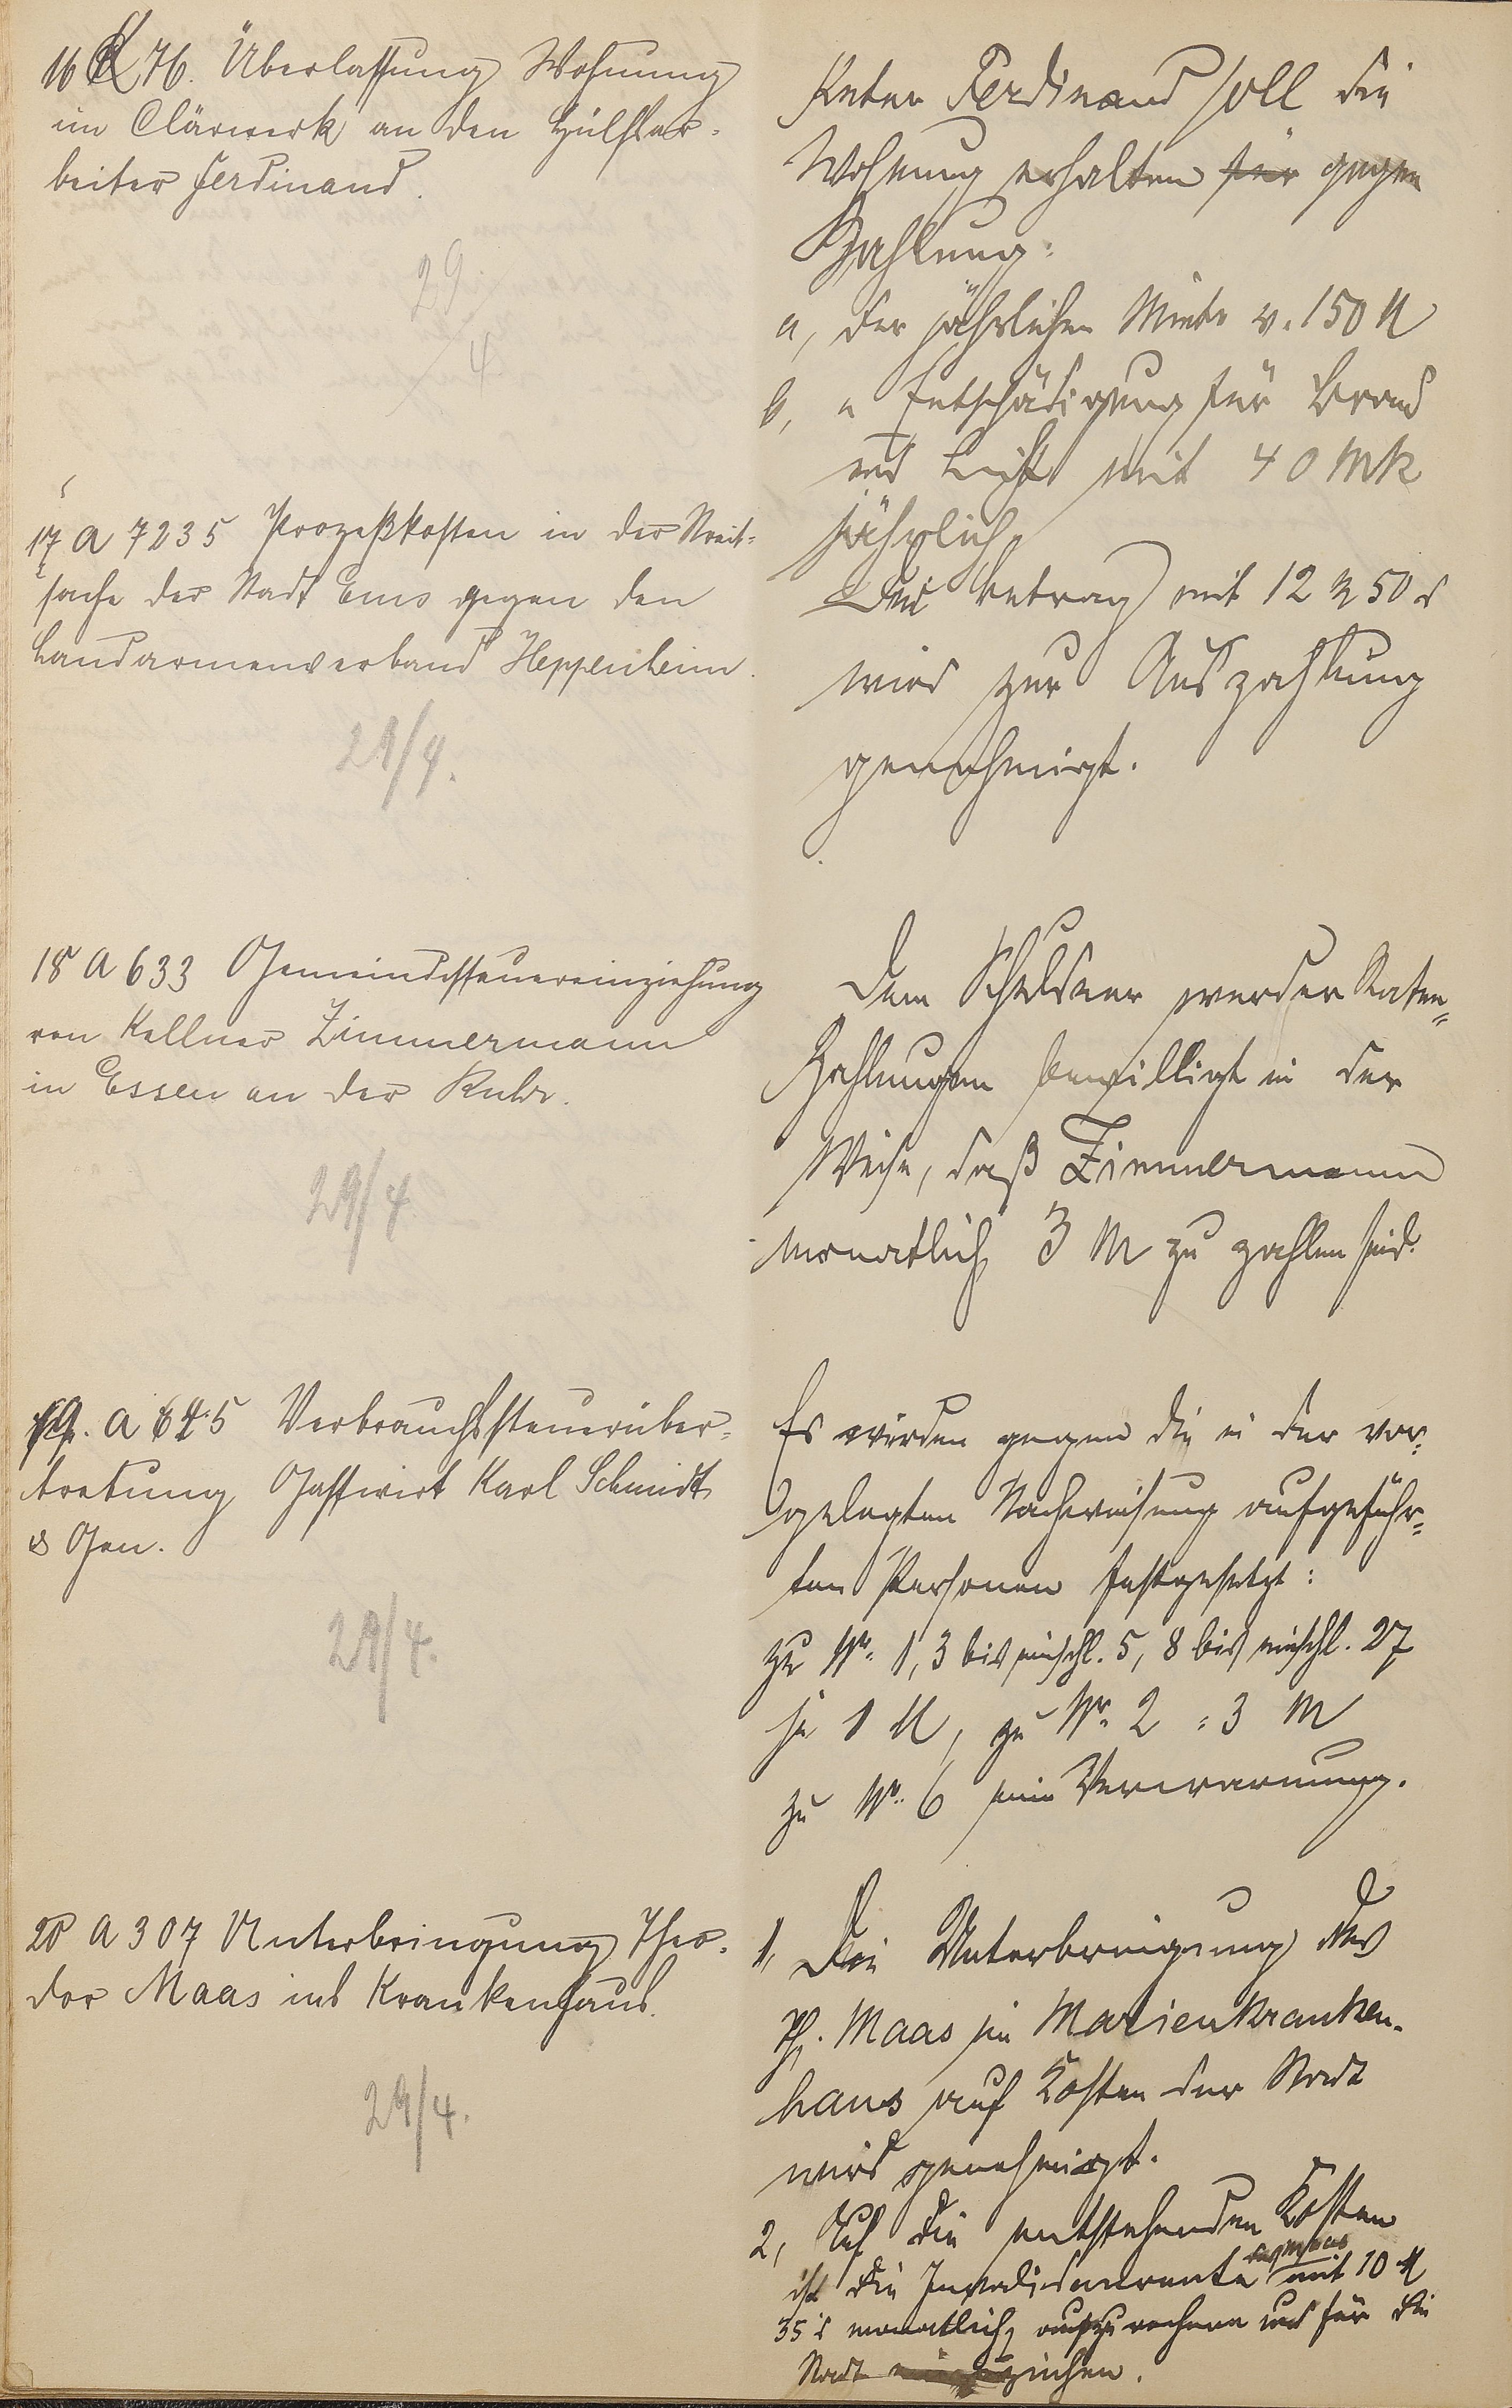 16 76. Überlassung Wohnung
im Clärwerk an den Hülfsar-
beiter Ferdinand.
29/4
17 A 7235 Prozeßkosten in der Streit-
sache der Stadt Ems gegen den
Landarmenverband Heppenheim.
29/4.
18 A 633 Gemeindesteuereinziehung
von Kellner Zimmermann
in Essen an der Ruhr.
29/4
19. A 645 Verbrauchssteuerüber-
tretung Gastwirt Karl Schmidt
& Gen.
29/4.
20 A 307 Unterbringung Theo-
dor Maas ins Krankenhaus.
29/4.
Peter Ferdinand soll die
Wohnung erhalten für gegen
Zahlung:
a, der jährlichen Miete v. 150 M
b, " Entschädigung für Brand
und Licht mit 40 Mk
jährlich.
Der Betrag mit 12 M 50 d
wird zur Auszahlung
genehmigt.
Dem Schuldner werden Raten-
Zahlungen bewilligt in der
Weise, daß Zimmermann
monatlich 3 M zu zahlen sind.
Es werden gegen die in der vor-
gelegten Nachweisung aufgeführ-
ten Personen festgesetzt:
zu Nr. 1, 3 bis einschl. 5, 8 bis einschl. 27
je 1 M, zu Nr. 2 = 3 M
zu Nr. 6 eine Verwarnung.
1, Die Unterbringung des
Th. Maas im Marienkranken-
haus auf Kosten der Stadt
wird genehmigt.
2, Auf die entstehenden Kosten
ist die Invalidenrente mit 10 M
35 d monatlich aufzurechnen und für die
Stadt einzuziehen.